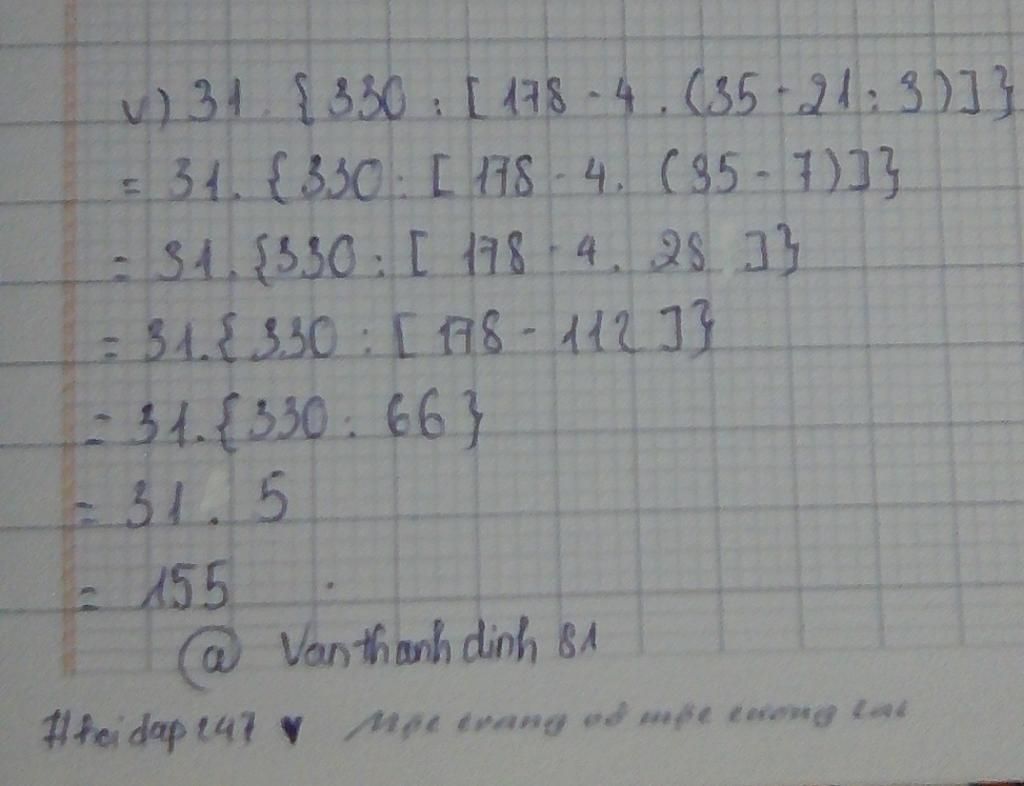 v) 31 . {330 : [178 - 4 . (35 - 21 : 3)]}
= 31. {330 : [178 - 4. (35 - 7)]}
= 31. {330 : [178 - 4. 28 ]}
= 31.{330 : [178 - 112 ]}
= 31.{330 : 66}
= 31 . 5
= 155 .
@ Vanthanhdinh 81
Một trang vở một tương lai